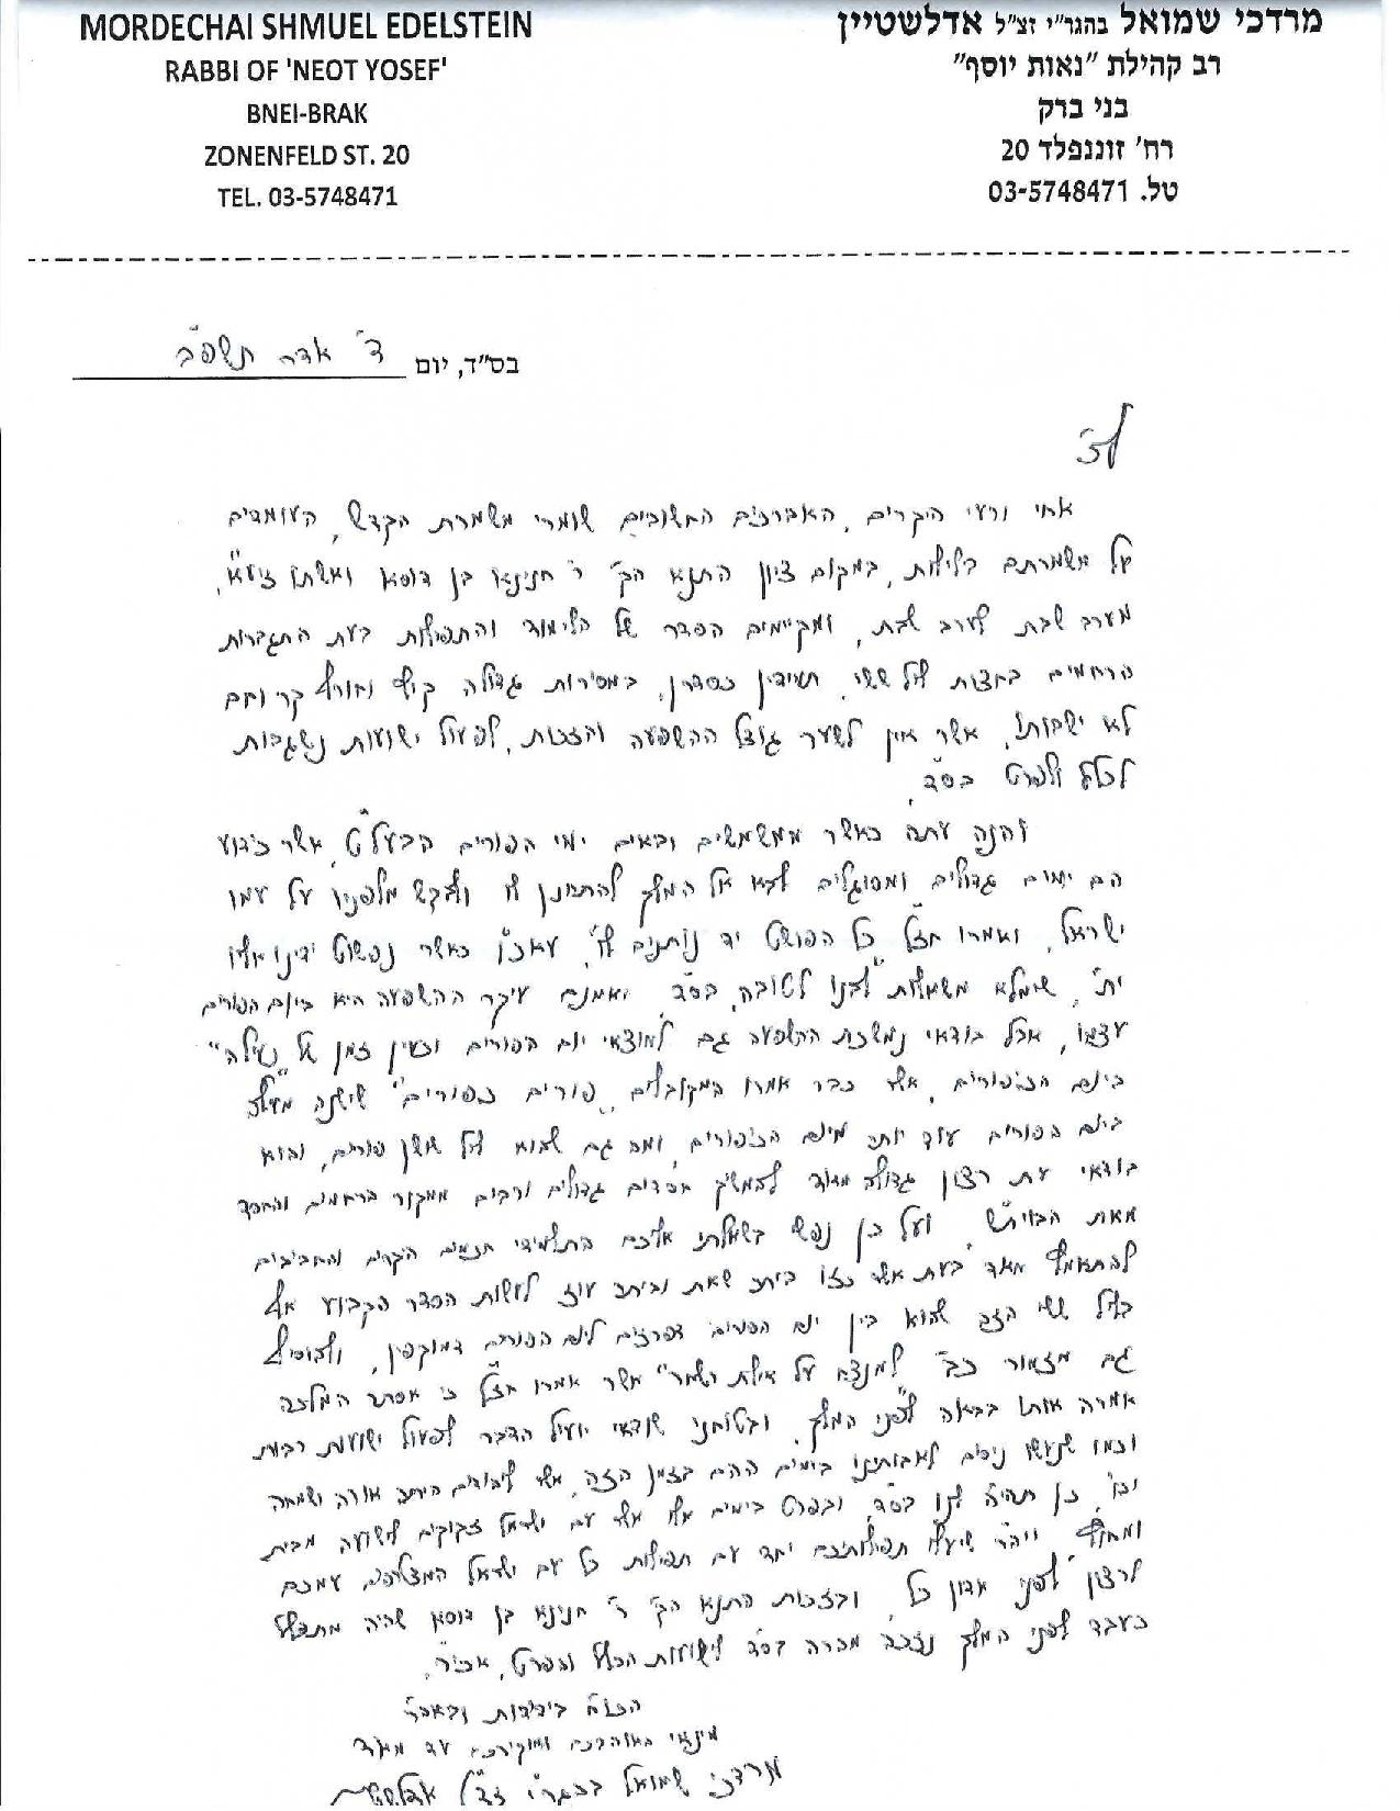 MORDECHAI SHMUEL EDELSTEIN
RABBI OF 'NEOT YOSEF'
BNEI-BRAK
ZONENFELD ST. 20
TEL. 03-5748471
מרדכי שמואל בהגר"י זצ"ל אדלשטיין
רב קהילת "נאות יוסף"
בני ברק
רח' זוננפלד 20
טל. 03-5748471
בס"ד, יום ד' אדר תשפ"ב
לכ'
אחי ורעי היקרים, האברכים החשובים שומרי משמרת הקדש, העומדים
על משמרתם בלילות, במקום ציון התנא הק' ר' חנינא בן דוסא ואשתו זיע"א,
מערב שבת לערב שבת, ומקיימים הסדר של הלימוד והתפילות בעת התגברות
הרחמים בחצות ליל ששי, תמידין כסדרן, במסירות גדולה קיץ וחורף קר וחם
לא ישבותו, אשר אין לשער גודל ההשפעה והזכות, לפעול ישועות נשגבות
לכלל ולפרט בס"ד.
והנה עתה כאשר ממשמשים ובאים ימי הפורים הבעל"ט, אשר כידוע
הם ימים גדולים ומסוגלים לבא אל המלך להתחנן לו ולבקש מלפניו על עמו
ישראל, ואמרו חז"ל כל הפושט יד נותנים לו, עאכ"ו כאשר נפשוט ידינו אליו
ית', שימלא משאלות לבנו לטובה, בס"ד, ואמנם עיקר ההשפעה היא ביום הפורים
עצמו, אבל בודאי נמשכת ההשפעה גם למוצאי יום הפורים וכעין זמן של "נעילה"
ביום הכיפורים, אשר כבר אמרו המקובלים "פורים כפורים" שישנה מעלה
ביום הפורים עוד יותר מיום הכיפורים, ומה גם שהוא ליל שושן פורים, והוא
בודאי עת רצון גדולה מאוד להמשיך חסדים גדולים ורבים ממקור הרחמים והחסד
מאת הבוי"ש. ועל כן נפשי בשאלתי אליכם התלמידי חכמים היקרים והחביבים
להתאמץ מאד בעת אשר כזו ביתר שאת וביתר עוז לעשות הסדר הקבוע אף
בליל ששי הזה שהוא בין יום הפורים דפרזים ליום הפורים דמוקפין, ולהוסיף
גם מזמור כב' "למנצח על אילת השחר" אשר אמרו חז"ל כי אסתר המלכה
אמרה אותו בבואה לפני המלך, ובטוחני שודאי יועיל הדבר לפעול ישועות רבות
וכמו שנעשו ניסים לאבותינו בימים ההם בזמן הזה, אשר ליהודים היתה אורה ושמחה
וכו', כן תהיה לנו בס"ד, ובפרט בימים אלו אשר עם ישראל זקוקים לישועה מבית
ומחוץ. ויה"ר שיעלו תפילותיכם יחד עם תפילות כל עם ישראל המצטרפים עמכם
לרצון לפני אדון כל, ובזכות התנא הק' ר' חנינא בן דוסא שהיה מתפלל
כעבד לפני המלך נזכה מהרה בס"ד לישועות הכלל והפרט, אכי"ר.
הכו"ח בידידות ובאהבה
מינאי האוהבכם ומוקירכם עד מאוד
מרדכי שמואל בהגר"י זצ"ל אדלשטיין